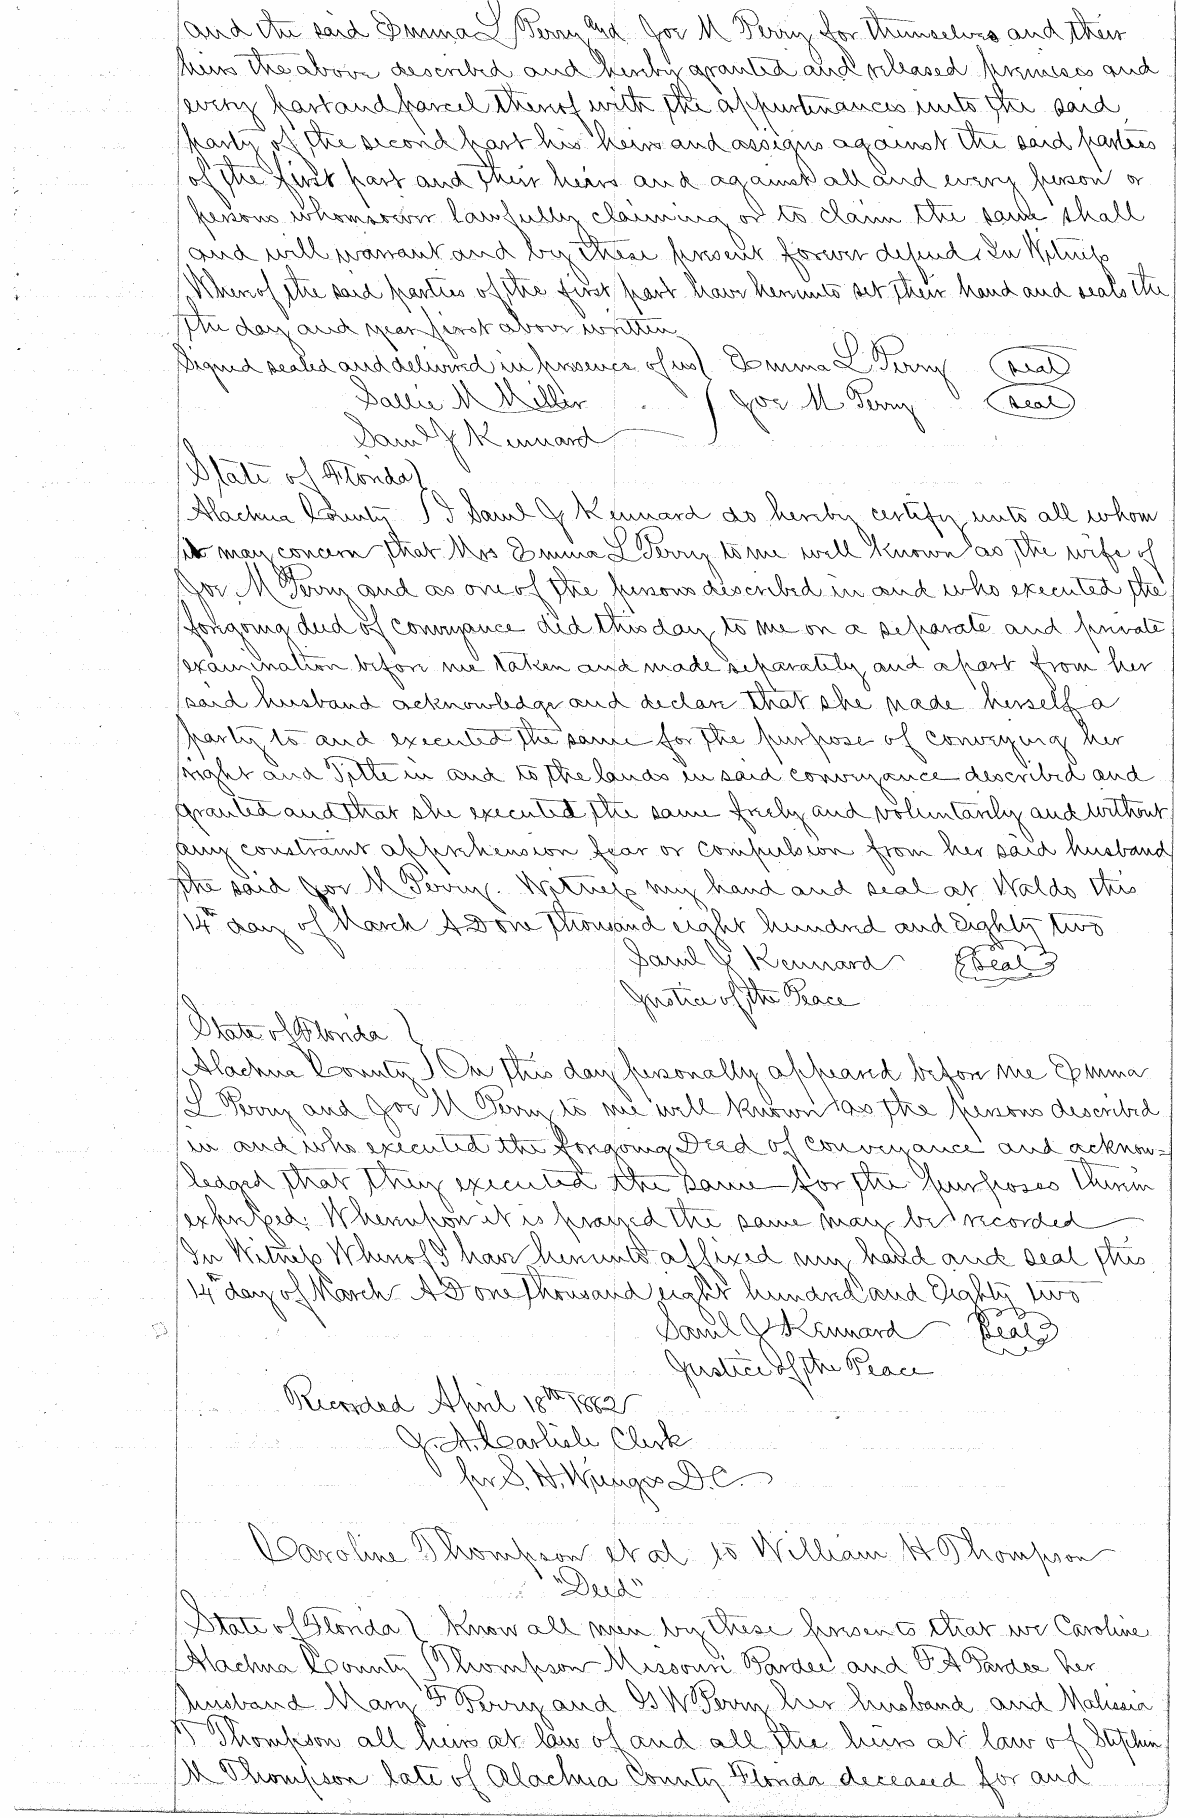 and the said Emma L Perry and Joe M Perry for themselves and their
heirs the above described and hereby granted and released premises and
every part and parcel thereof with the appurtenances unto the said
party of the second part his heirs and assigns against the said parties
of the first part and their heirs and against all and every person or
persons whomsoever lawfully claiming or to claim the same shall
and will warrant and by these present forever defend. In Witness
Whereof the said parties of the first part have hereunto set their hand and seals the
the day and year first above written
Signed sealed and delivered in presence of us) Emma L Perry (seal)
Sallie M Miller ) Joe M Perry (seal)
Saml J Kennard
State of Florida)
Alachua County ) I Saml J Kennard do hereby certify unto all whom
it may concern that Mrs Emma L Perry to me well known as the wife of
Joe M Perry and as one of the persons described in and who executed the
foregoing deed of conveyance did this day to me on a separate and private
examination before me taken and made separately and apart from her
said husband acknowledge and declare that she made herself a
party to and executed the same for the purpose of conveying her
right and Title in and to the lands in said conveyance described and
granted and that she executed the same freely and voluntarily and without
any constraint apprehension fear or compulsion from her said husband
the said Joe M Perry. Witness my hand and seal at Waldo this
14th day of March A D one thousand eight hundred and Eighty two
Saml J Kennard (Seal)
Justice of the Peace
State of Florida )
Alachua County ) On this day personally appeared before me Emma
L Perry and Joe M Perry to me well known as the persons described
in and who executed the foregoing Deed of conveyance and acknow=
ledged that they executed the same for the purposes therein
expressed. Whereupon it is prayed the same may be recorded
In Witness Whereof I have hereunto affixed my hand and seal this
14th day of March A D one thousand eight hundred and Eighty two
Saml J Kennard (Seal)
Justice of the Peace
Recorded April 18th 1882
J. A. Carlisle Clerk
per S. H. Wienges D.C.
Caroline Thompson et al to William H Thompson
"Deed"
State of Florida ) Know all men by these presents that we Caroline
Alachua County ) Thompson Missouri Pardee and F A Pardee her
husband Mary F Perry and G W Perry her husband and Malissia
T Thompson all heirs at law of and all the heirs at law of Stephen
M Thompson late of Alachua County Florida deceased for and